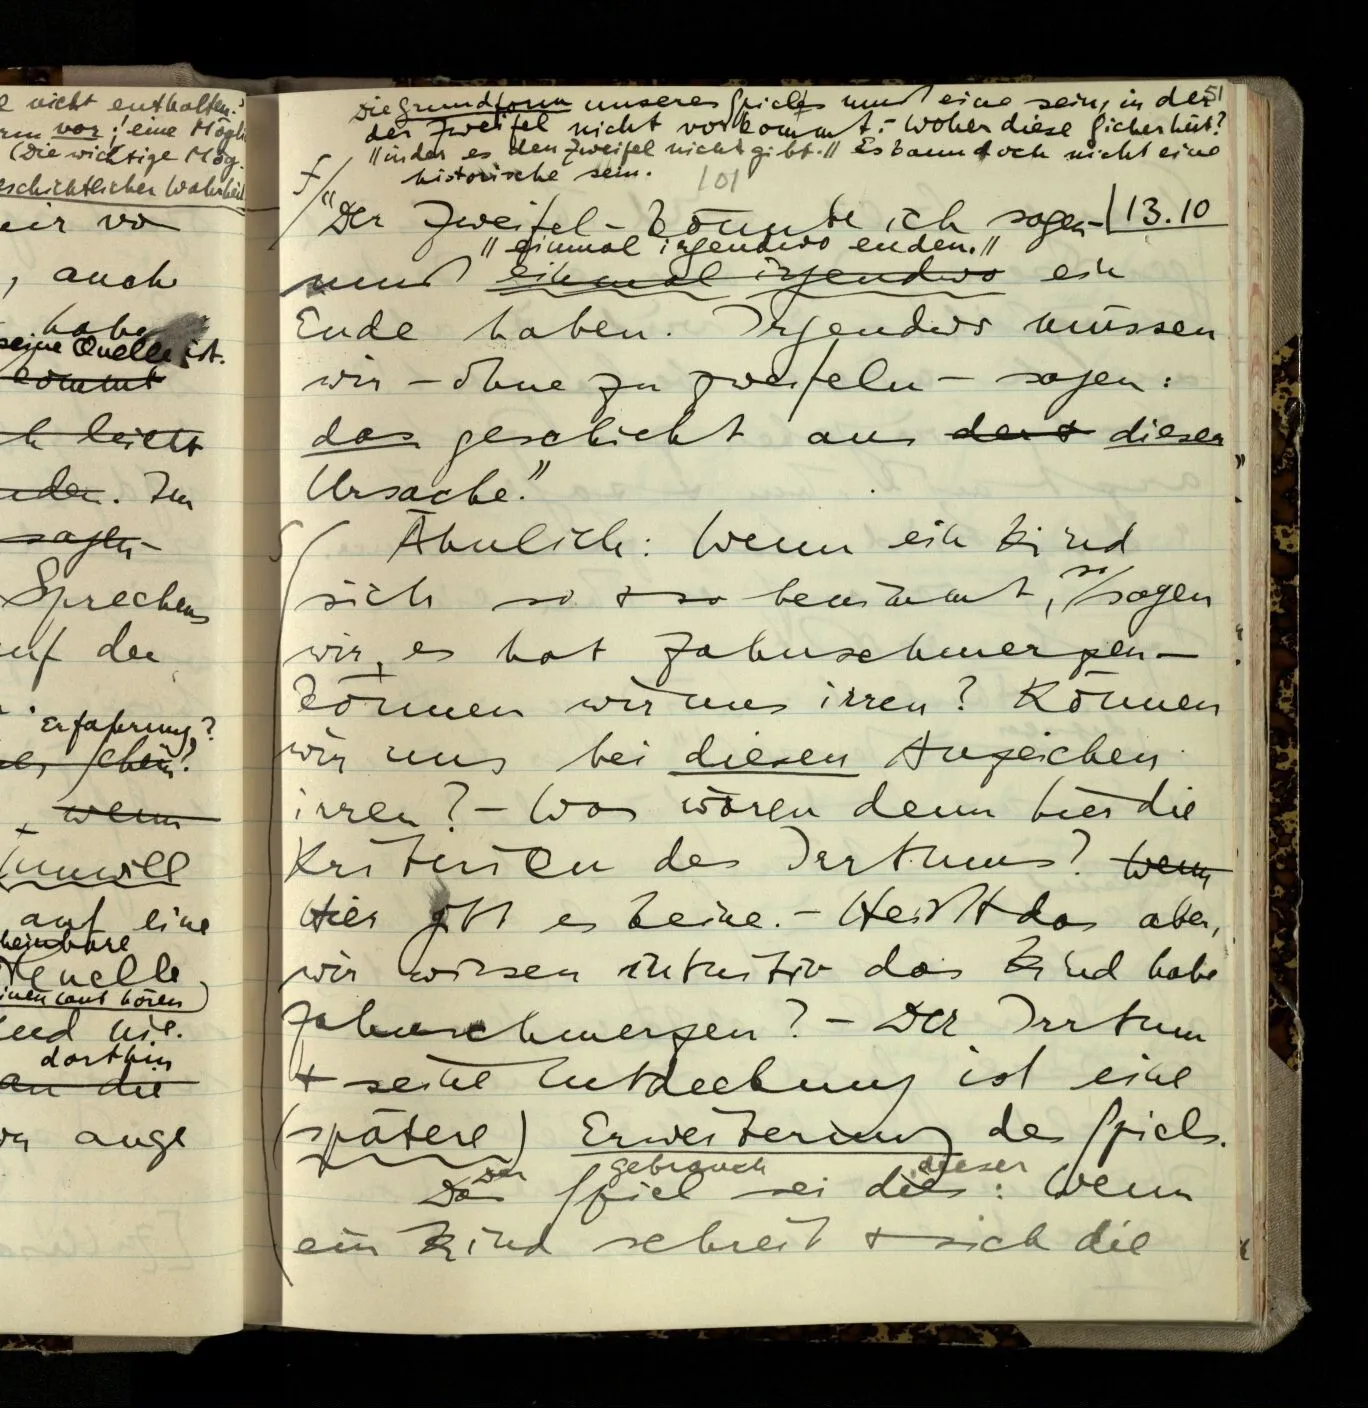 e nicht enthalten."
vor; eine Mögli
(Die wichtige Mög.
eschichtlicher Wahrheit
eir vo
, auch
habe
seine Quelle ist.
kommt
h leicht
nden. Im
sagen
Sprechens
uf den
Erfahrung?
schein?
wenn
Unwill
auf eine
heinbare
Quelle,
einen laut hören)
und nie.
dorthin
an die
ange
51
Die Grundform unseres Spiels muß eine sein, in der
der Zweifel nicht vorkommt. – Woher diese Sicherheit?
//in der es den Zweifel nicht gibt.// Es kann doch nicht eine
historische sein.
101
"Der Zweifel – könnte ich sagen – | 13.10
//einmal irgendwo enden.//
muß einmal irgendwo ein
Ende haben. Irgendwo müssen
wir – ohne zu zweifeln – sagen:
das geschieht aus dieser
Ursache."
S Ähnlich: Wenn ein Kind
so
sich so + so benimmt, / sagen
wir, es hat Zahnschmerzen –
können wir uns irren? Können
wir uns bei diesen Anzeichen
irren? – Was wären denn hier die
Kriterien des Irrtums? Wenn
Hier gibt es keine. – Heißt das aber,
wir wissen intuitiv das Kind habe
Zahnschmerzen? – Der Irrtum
+ seine Entdeckung ist eine
(spätere) Erweiterung des Spiels.
Der gebrauch dieser
Das Spiel sei dies: Wenn
ein Kind schreit + sich die